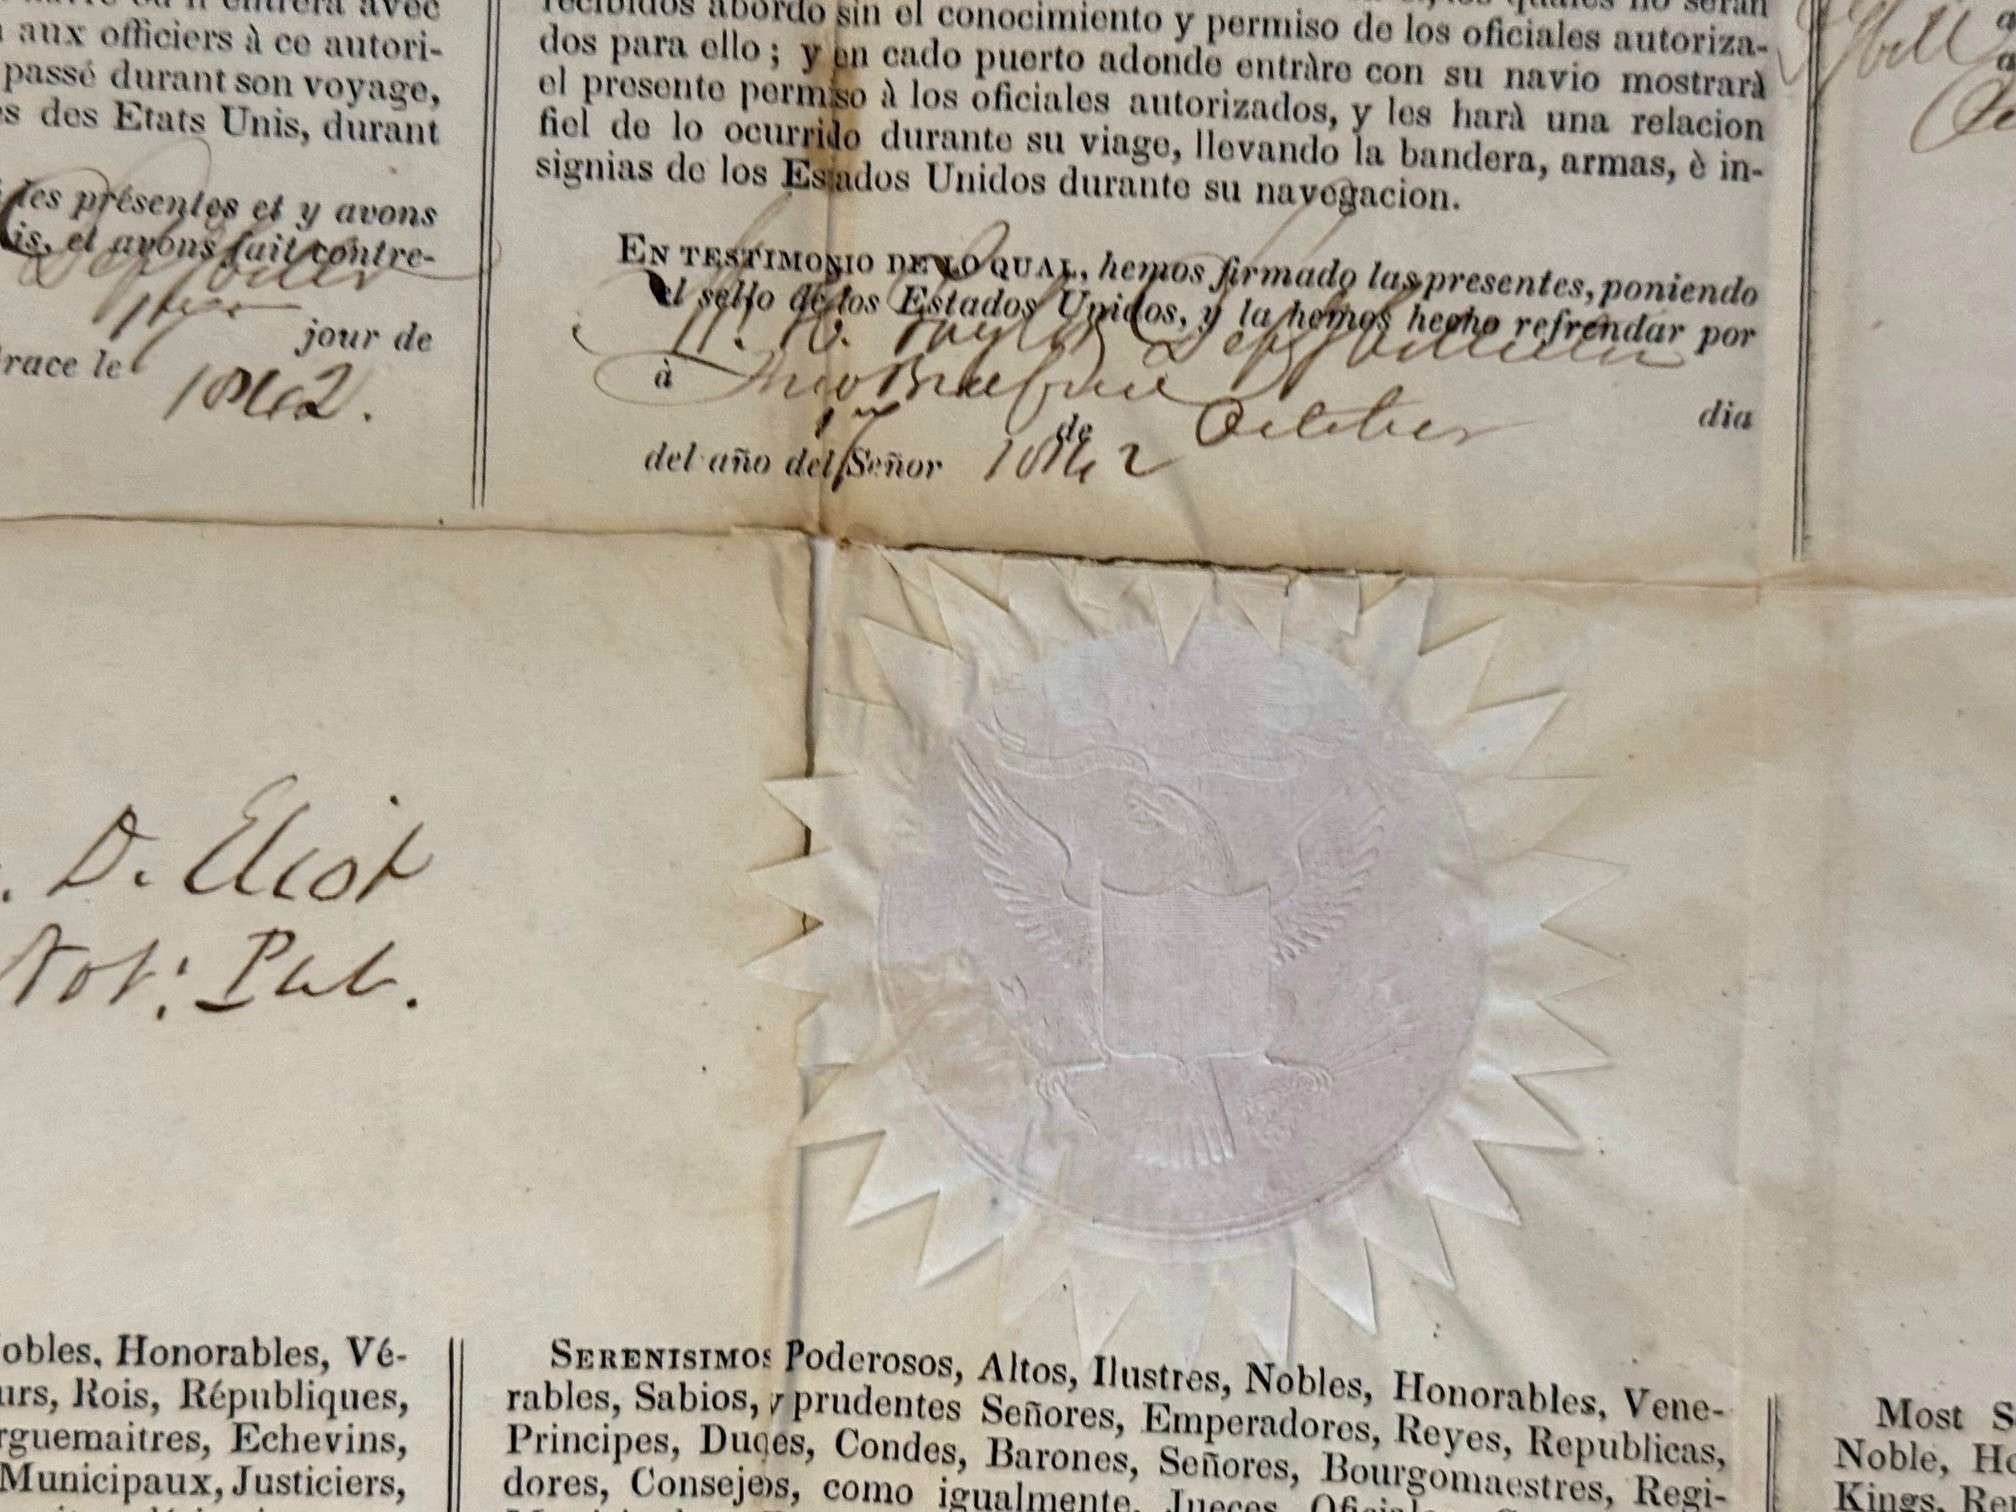 avec
aux officiers à ce autori-
passé durant son voyage,
des des Etats Unis, durant
les présentes et y avons
et avons fait contre-
jour de
le
1862.
recibidos abordo sin el conocimiento y permiso de los oficiales autoriza-
dos para ello; y en cado puerto adonde entràre con su navio mostrarà
el presente permiso à los oficiales autorizados, y les harà una relacion
fiel de lo ocurrido durante su viage, llevando la bandera, armas, è in-
signias de los Estados Unidos durante su navegacion.
EN TESTIMONIO DE LO QUAL, hemos firmado las presentes, poniendo
el sello de los Estados Unidos, y la hemos hecho refrendar por
à New Bedford
17 de October dia
del año del Señor 1862
D. Eliot
Not: Pub.
Nobles, Honorables, Vé-
Rois, Républiques,
Echevins,
Municipaux, Justiciers,
SERENISIMOS Poderosos, Altos, Ilustres, Nobles, Honorables, Vene-
rables, Sabios, y prudentes Señores, Emperadores, Reyes, Republicas,
Principes, Duques, Condes, Barones, Señores, Bourgomaestres, Regi-
dores, Consejeros, como igualmente, Jueces, Oficiales
Most
Noble,
Kings,